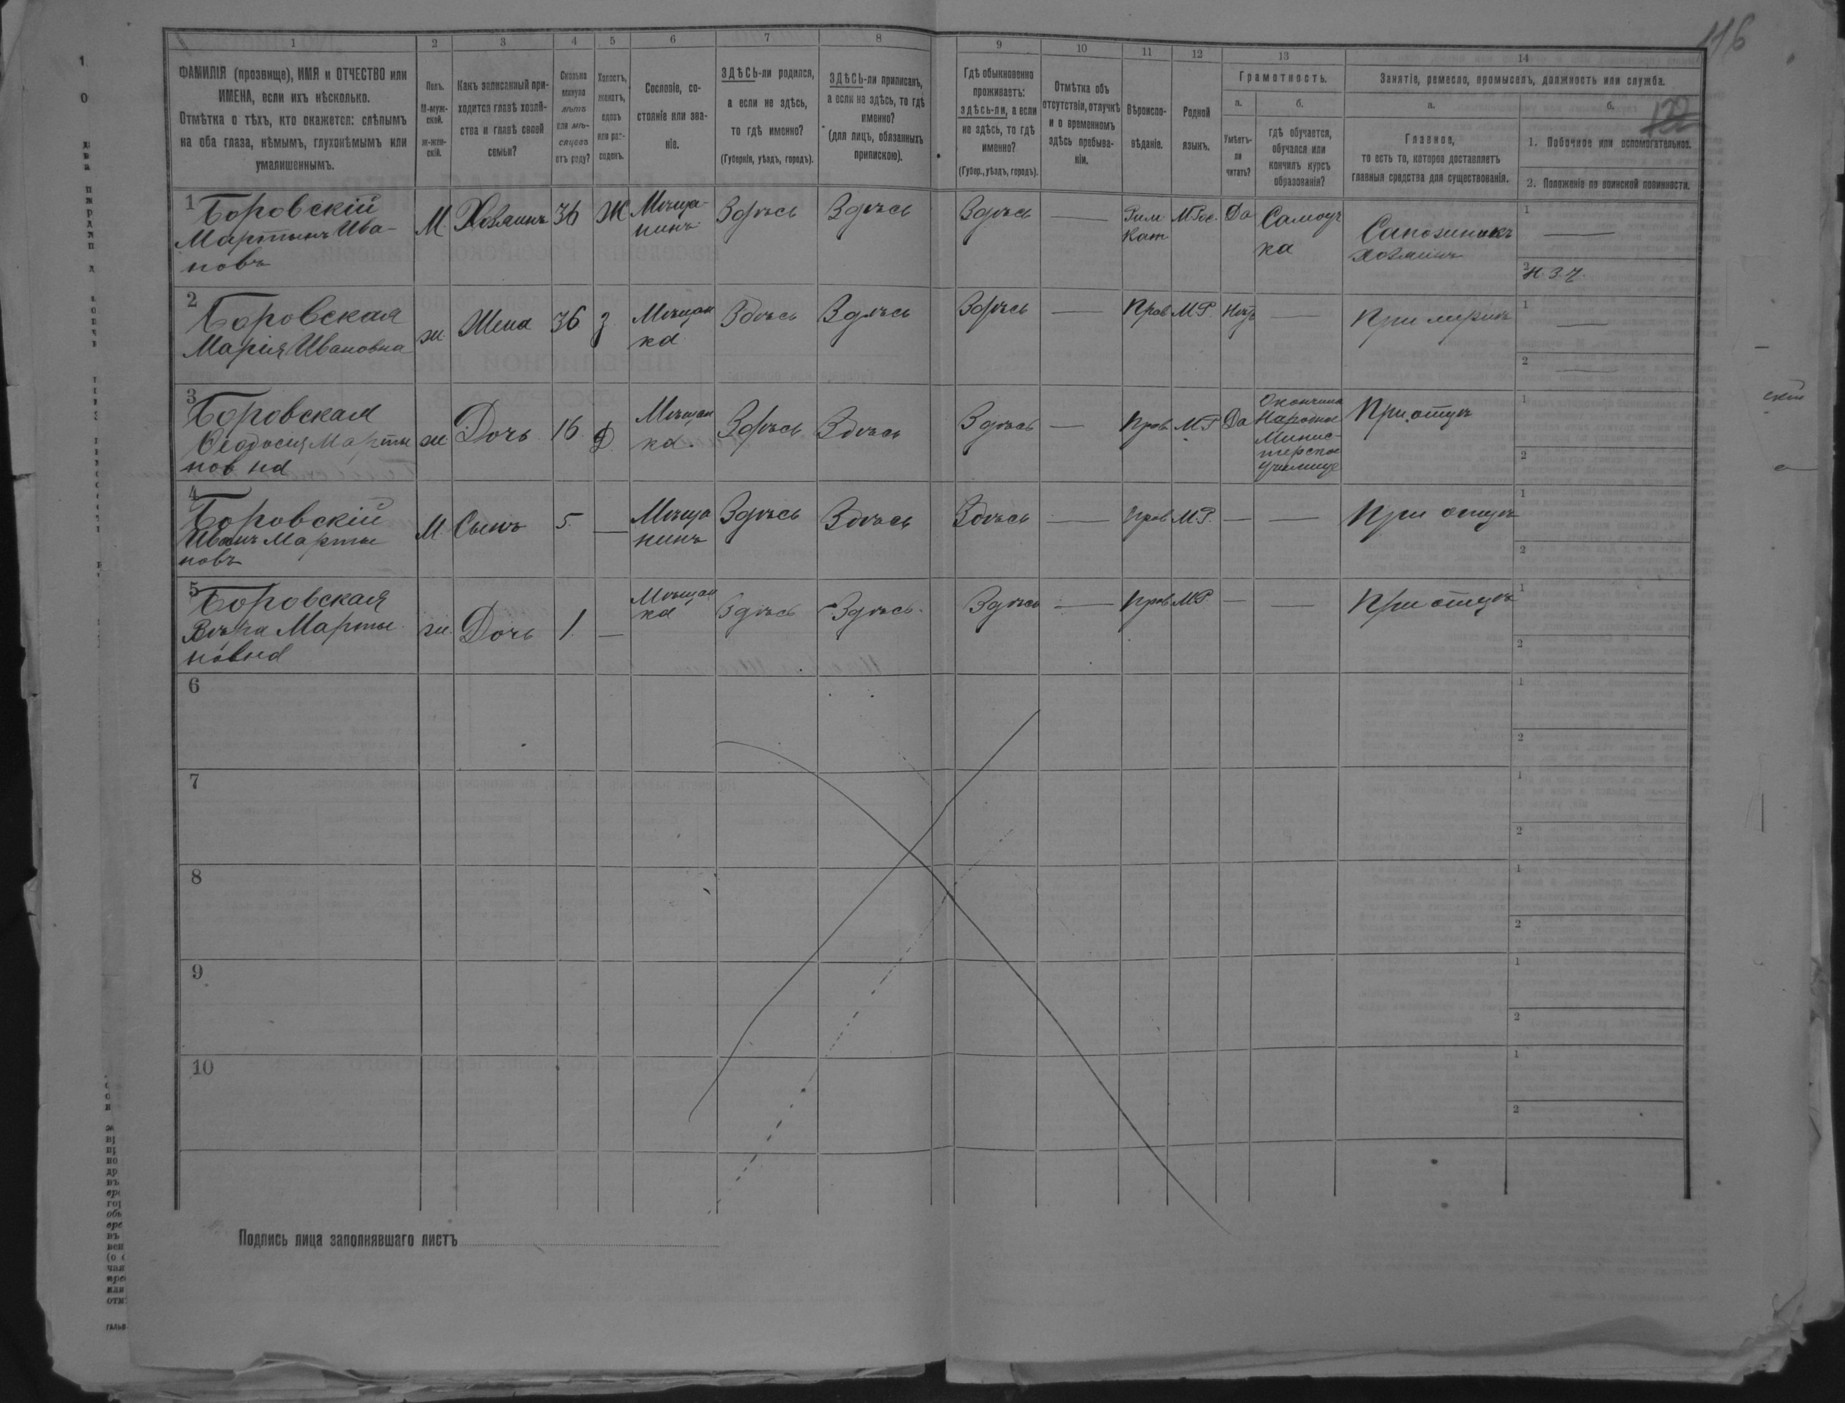 116
122
1 2 3 4 5 6 7 8 9 10 11 12 13 14
ФАМИЛІЯ (прозвище), ИМЯ и ОТЧЕСТВО или
ИМЕНА, если ихъ нѣсколько.
Отмѣтка о тѣхъ, кто окажется: слѣпымъ
на оба глаза, нѣмымъ, глухонѣмымъ или
умалишеннымъ.
Полъ.
М-муж-
ской.
Ж-жен-
скій.
Какъ записанный при-
ходится главѣ хозяй-
ства и главѣ своей
семьи?
Сколько
минуло
лѣтъ
или мѣ-
сяцевъ
отъ роду?
Холостъ,
женатъ,
вдовъ
или раз-
веденъ.
Сословіе, со-
стояніе или зва-
ніе.
ЗДѢСЬ-ли родился,
а если не здѣсь,
то гдѣ именно?
(Губернія, уѣздъ, городъ).
ЗДѢСЬ-ли приписанъ,
а если не здѣсь, то гдѣ
именно?
(для лицъ, обязанныхъ
припискою).
Гдѣ обыкновенно
проживаетъ:
здѣсь-ли, а если
не здѣсь, то гдѣ
именно?
(Губер., уѣздъ, городъ).
Отмѣтка объ
отсутствіи, отлучкѣ
и о временномъ
здѣсь пребыва-
ніи.
Вѣроиспо-
вѣданіе.
Родной
языкъ.
Грамотность.
а.
Умѣетъ-
ли
читать?
б.
гдѣ обучается,
обучался или
кончилъ курсъ
образованія?
Занятіе, ремесло, промыселъ, должность или служба.
а.
Главное,
то есть то, которое доставляетъ
главныя средства для существованія.
б.
1. Побочное или вспомогательное.
2. Положеніе по воинской повинности.
1 Боровскій
Мартынъ Ива-
новъ
М Хозяинъ 36 Ж Мѣща-
нинъ
Здѣсь Здѣсь Здѣсь — Рим.
Кат.
М Рос. Да Самоуч
ка
Сапожникъ
Хозяинъ
1 —
2 н.з.ч.
2 Боровская
Марія Ивановна
ж Жена 36 З Мѣщан
ка
Здѣсь Здѣсь Здѣсь — Прав М.Р. Нѣтъ — При мужѣ 1 —
2 —
3 Боровская
Ѳеодосія Марты
новна
ж Дочь 16 Д Мѣщан
ка.
Здѣсь Здѣсь Здѣсь — Прав М.Р Да Окончила
Народное
Минис-
терское
Училище
При отцѣ 1
2
4 Боровскій
Иванъ Марты
новъ
М Сынъ 5. — Мѣща
нинъ
Здѣсь Здѣсь Здѣсь — Прав М.Р. — — При отцѣ 1
2
5 Боровская
Вѣра Марты
новна
ж. Дочь 1. — Мѣщан
ка
Здѣсь Здѣсь. Здѣсь — Прав М.Р. — — При отцѣ 1
2
6 1
2
7 1
2
8 1
2
9 1
2
10 1
2
Подпись лица заполнявшаго листъ